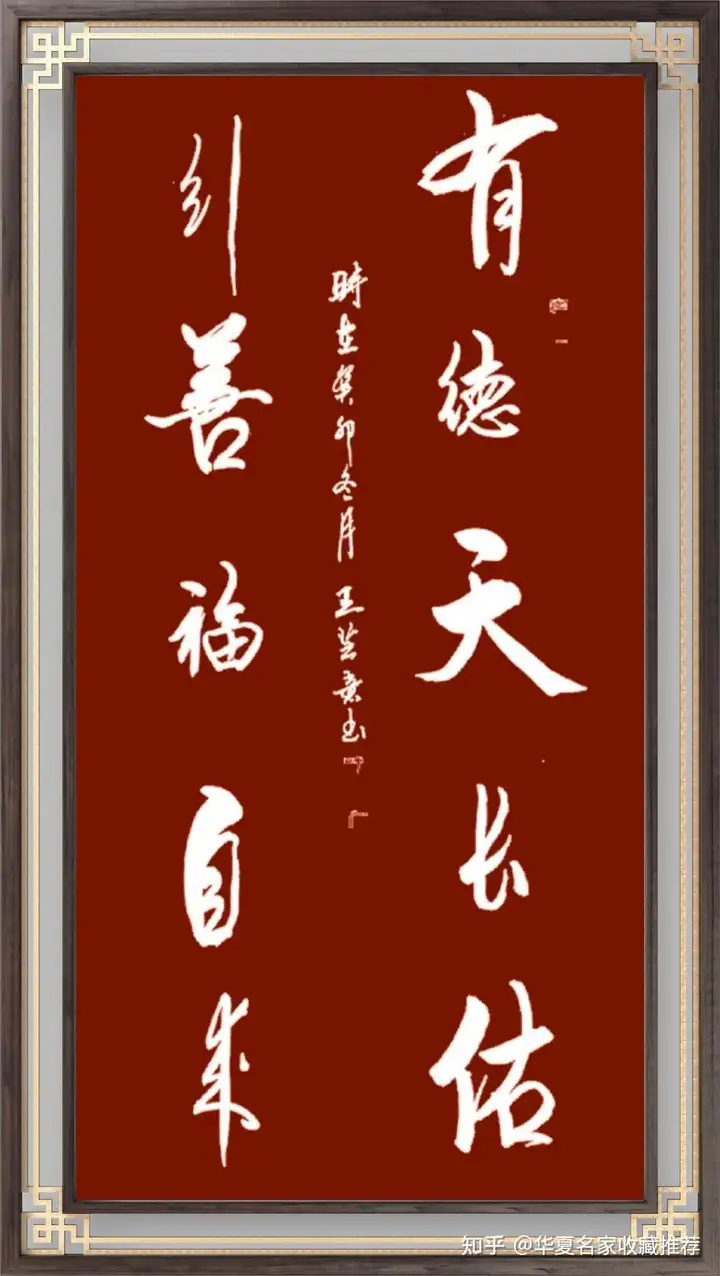 有德天长佑
時在癸卯冬月 王
引善福自来
知乎 @华夏名家收藏推荐